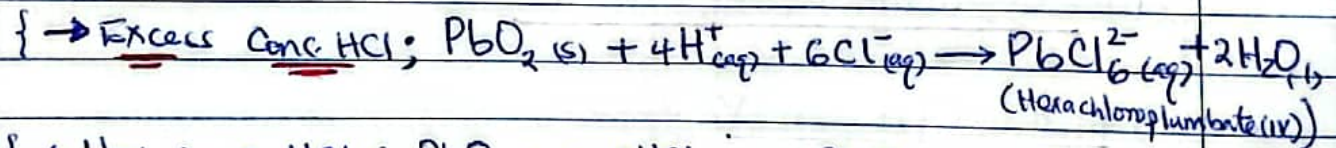 { → Excess Conc. HCl; PbO₂ (s) + 4H⁺(aq) + 6Cl⁻(aq) → PbCl₆²⁻(aq) + 2H₂O(l)
(Hexachloroplumbate(IV))